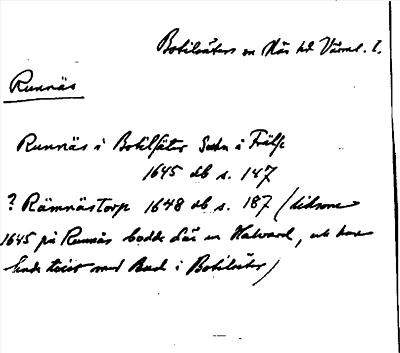 Botilsäters sn Näs hd Värml. l.
Runnäs
Runnäs i Botilsäter Sn i Frälse
1645 db s. 147
? Rämnästorp 1648 db s. 187 (liksom
1645 på Runnäs bodde där en Halvard, och han
hade tvist med Bud i Botilsäter)